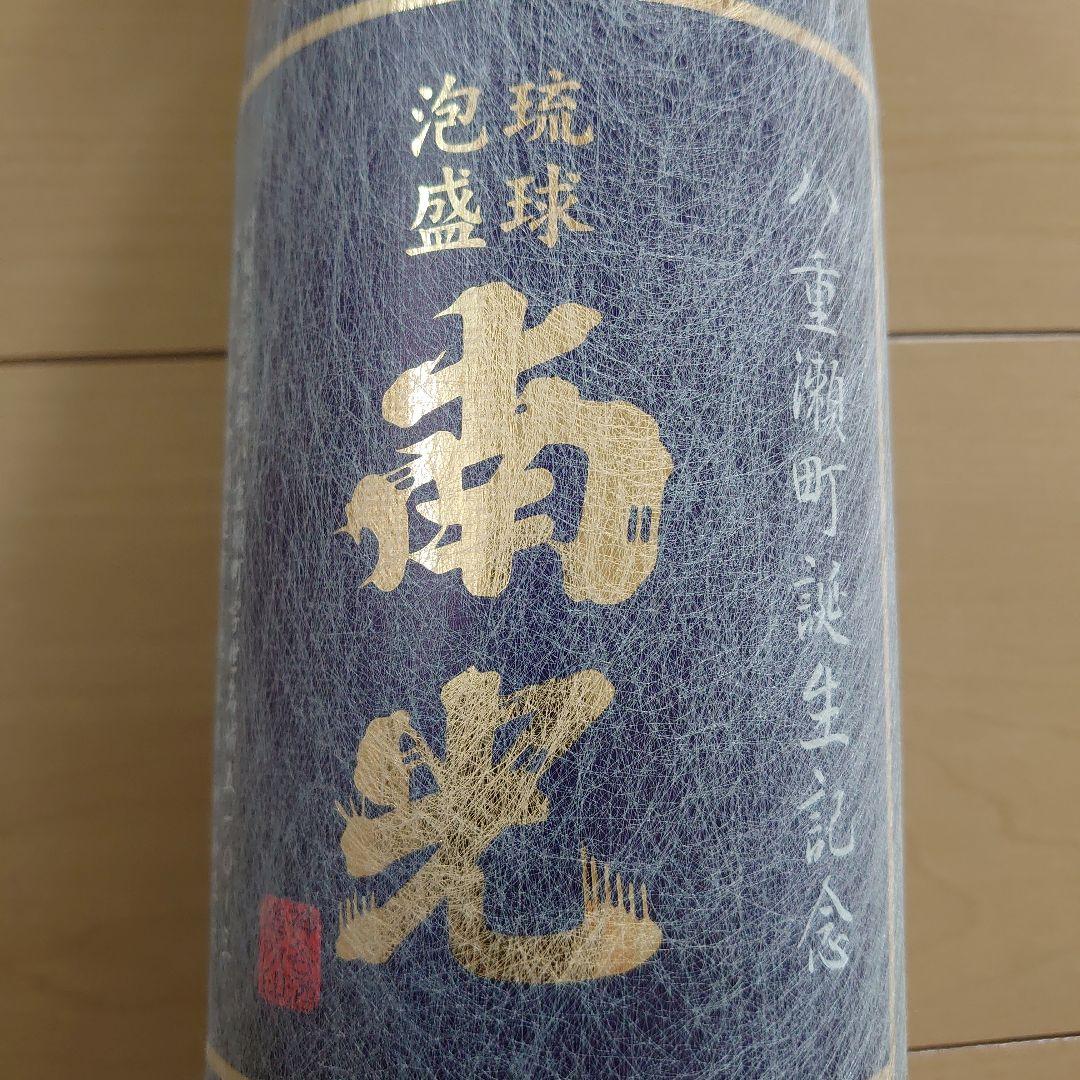 八重瀬町誕生記念
琉球
泡盛
南光